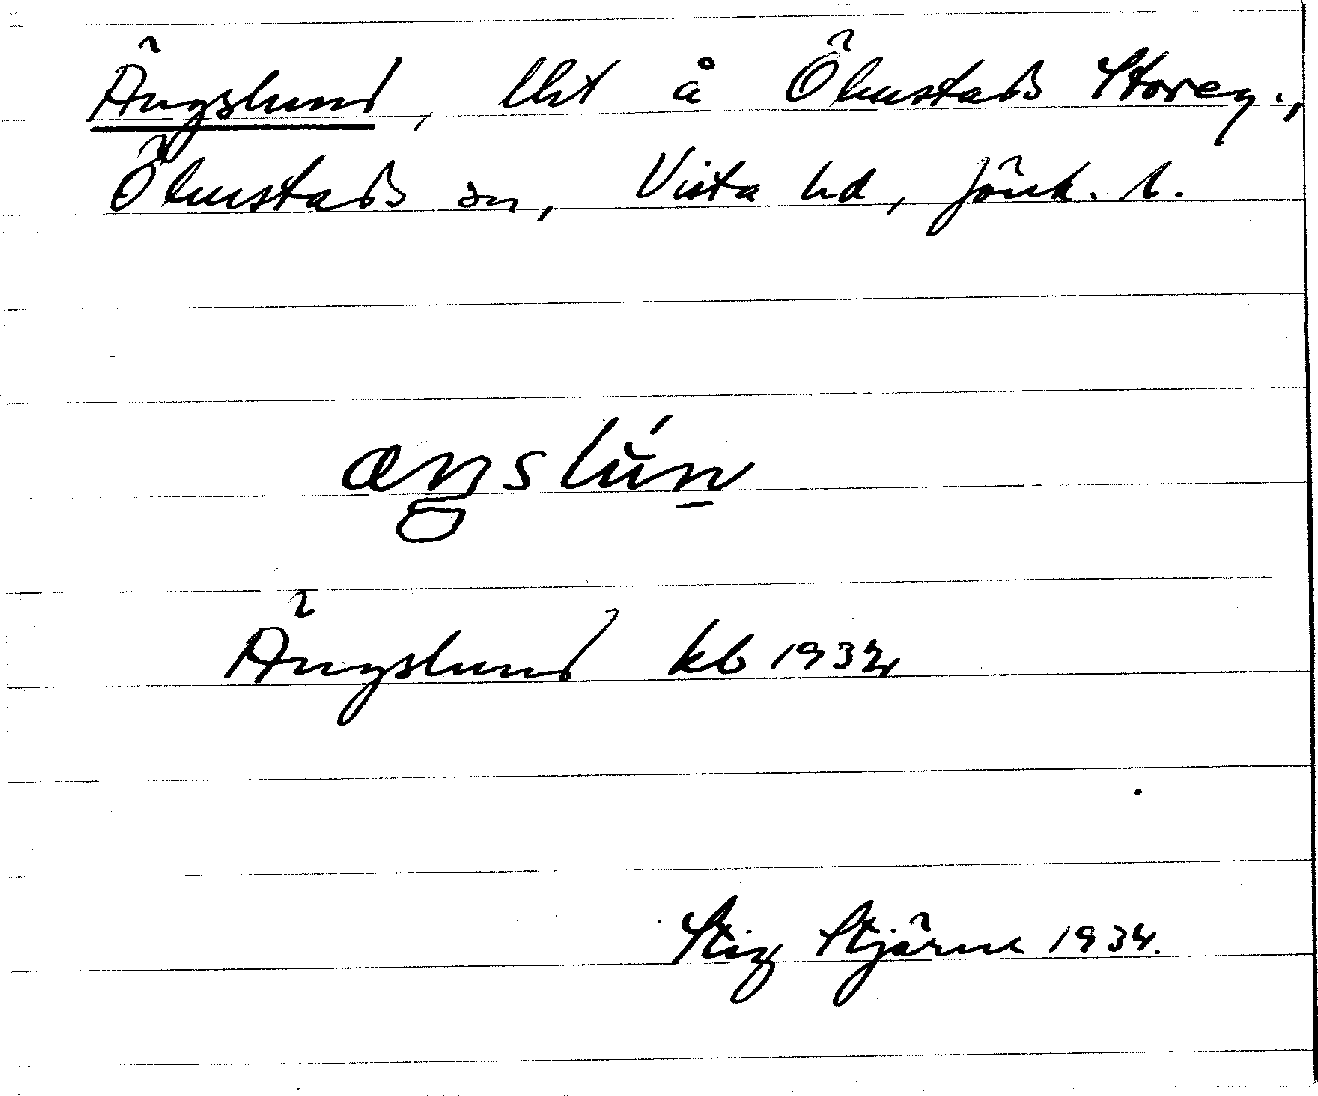 Ängslund, lht å Ölmstads Storeg.,
Ölmstads sn, Vista hd, Jönk. l.
æŋslún̠
Ängslund kb 1934
Stig Stjärne 1934.